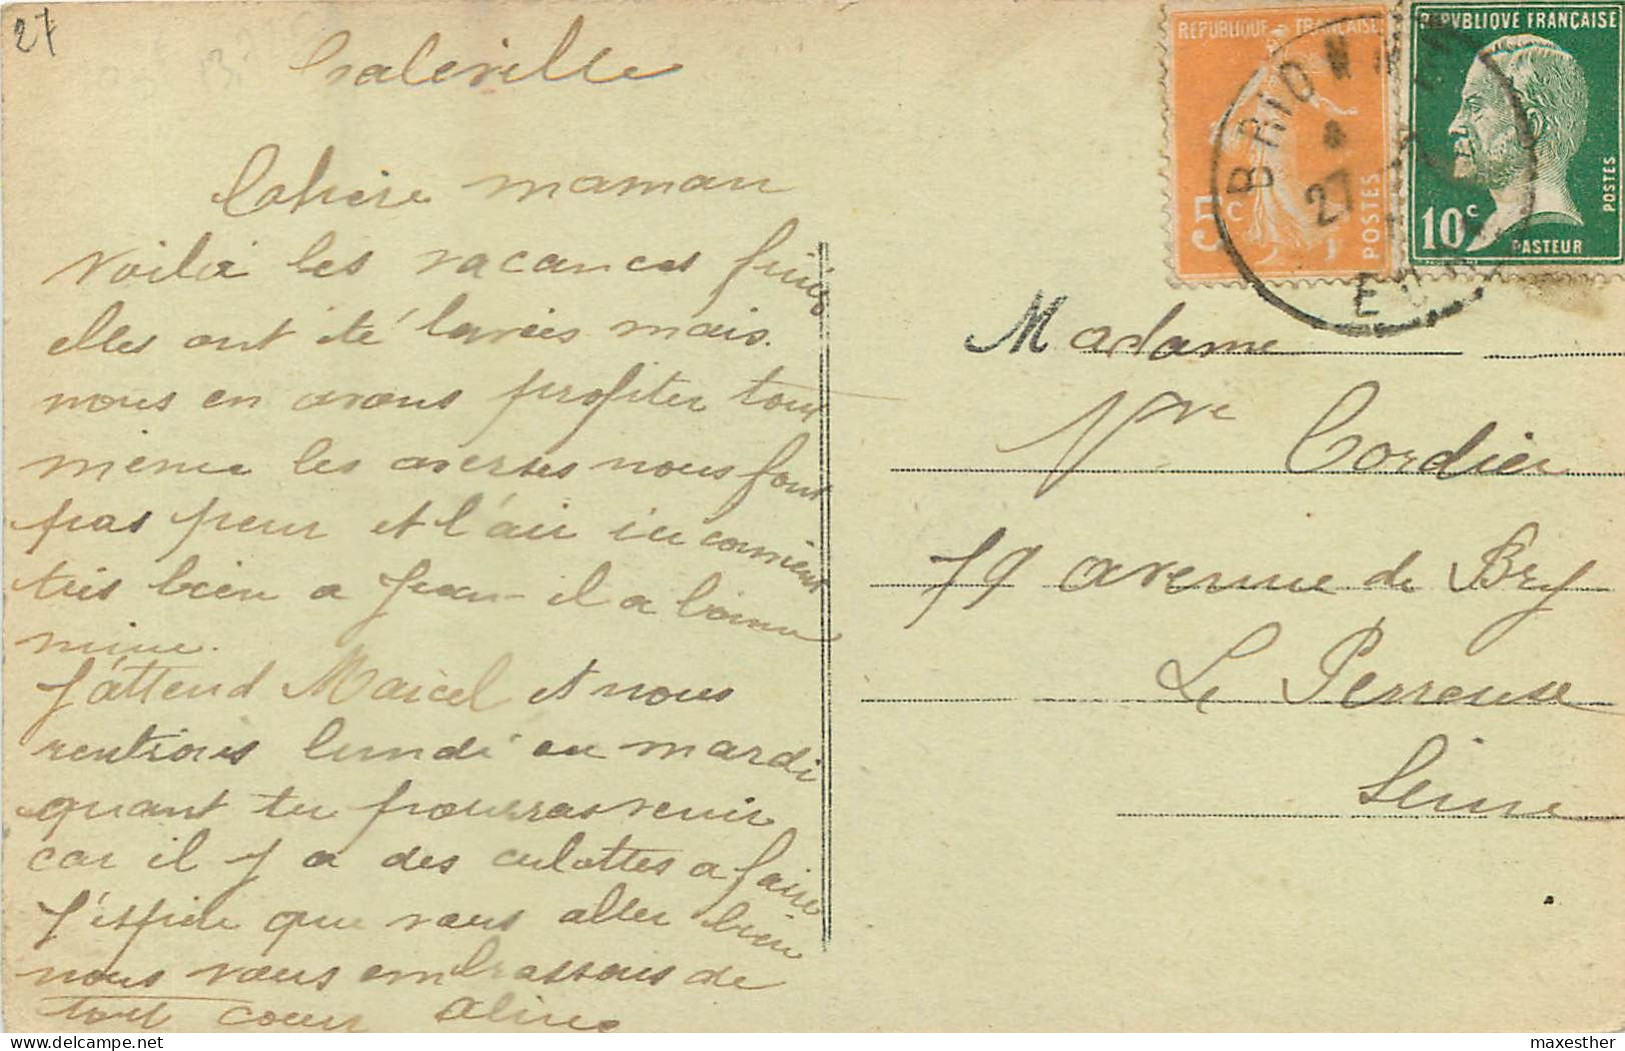 27
Caleville
Cohère maman
Voilà les vacances finies
elles ont été lavées mais
nous en avons profiter tout
même les averses nous font
pas peur et l'air ici convient
très bien a Jean il a bonne
mine.
J'attend Marcel et nous
rentrons lundi ou mardi
quant tu pourras venir
car il y a des culottes a faire
J'espère que vous aller bien
nous vous embrassons de
tout cœur Aline
REPUBLIQUE FRANÇAISE
5c
POSTES
REPVBLIQVE FRANÇAISE
10c
POSTES
PASTEUR
BRIONNE
27
EURE
Madame
Vve Cordier
79 avenue de Bry
Le Perreuse
Seine
maxesther